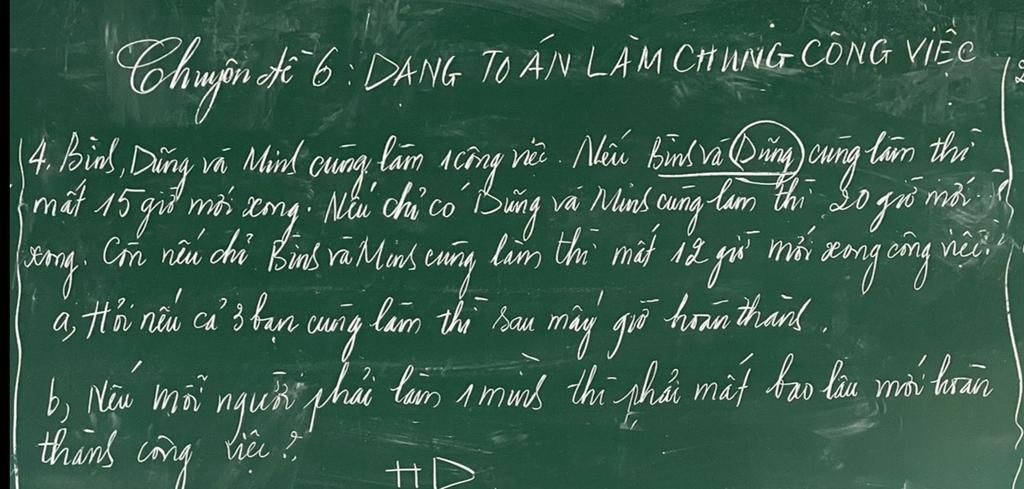 Chuyên đề 6: DẠNG TOÁN LÀM CHUNG CÔNG VIỆC
4. Bình, Dũng và Minh cùng làm 1 công việc. Nếu Bình và Dũng cùng làm thì
mất 15 giờ mới xong. Nếu chỉ có Dũng và Minh cùng làm thì 20 giờ mới
xong. Còn nếu chỉ Bình và Minh cùng làm thì mất 12 giờ mới xong công việc.
a, Hỏi nếu cả 3 bạn cùng làm thì sau mấy giờ hoàn thành.
b, Nếu mỗi người phải làm 1 mình thì phải mất bao lâu mới hoàn
thành công việc?
HD